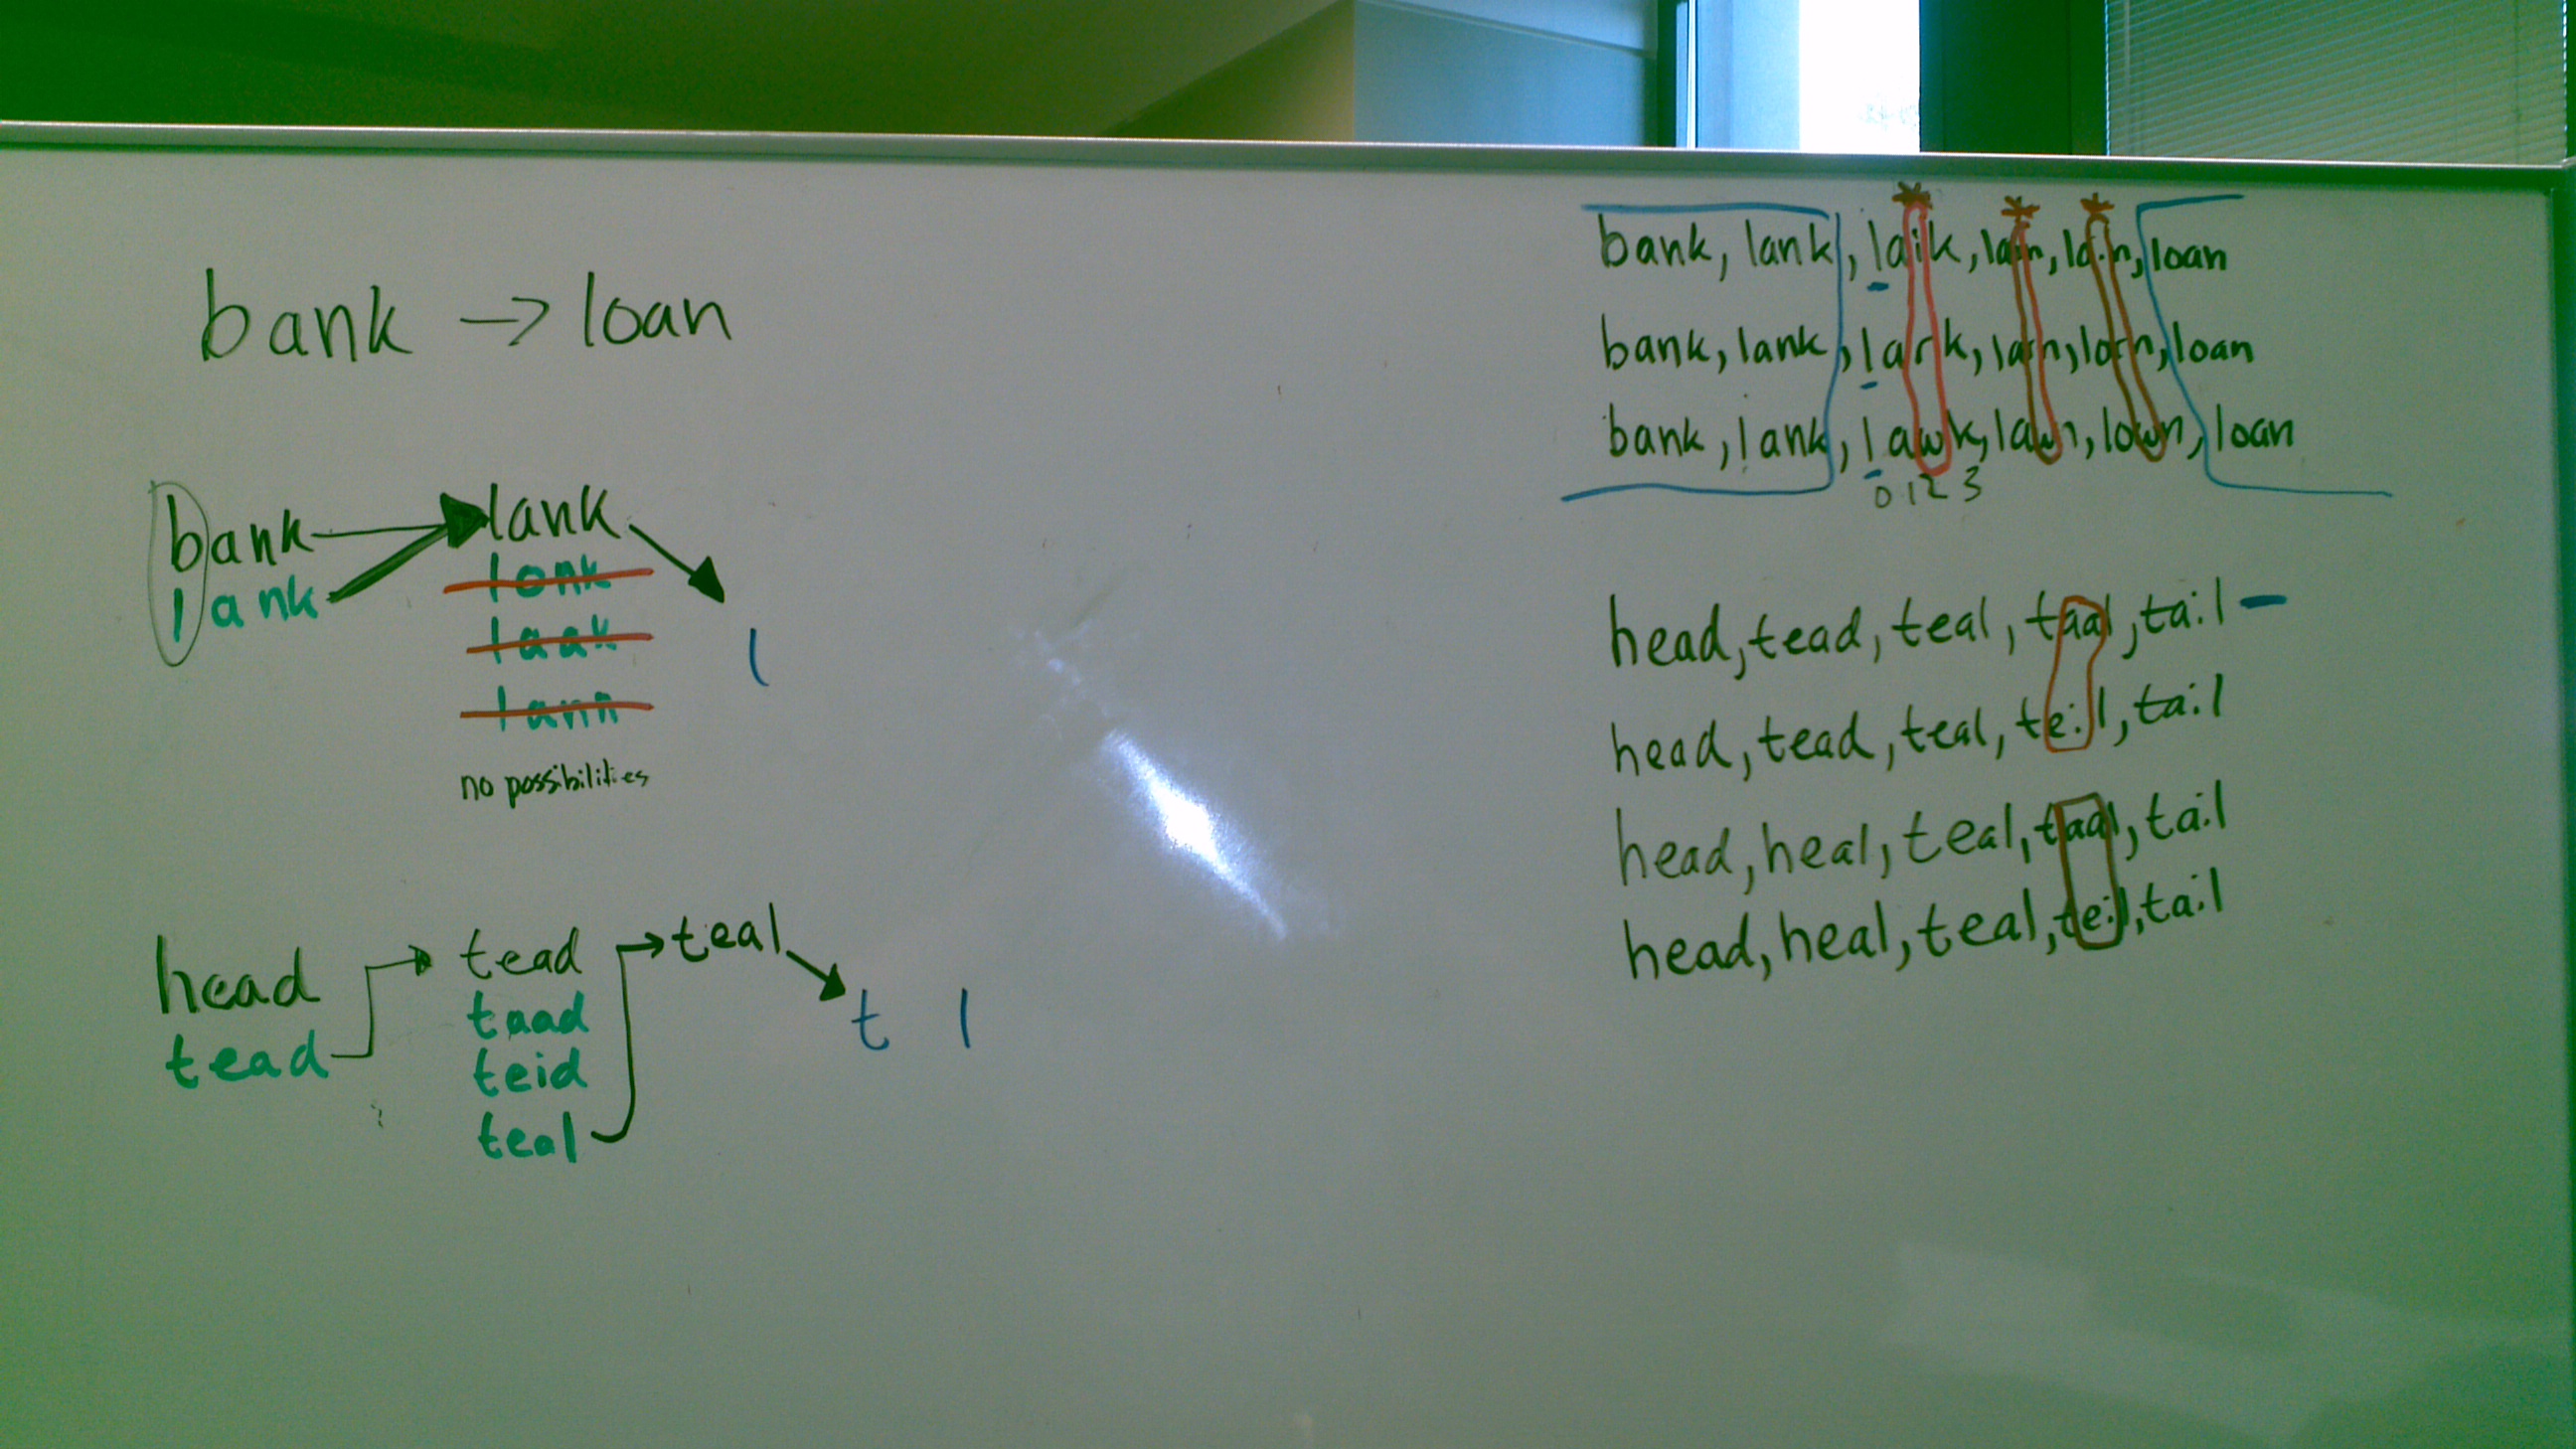 bank → loan
bank lank
lank lonk
laak
lann
no possibilities
l
head tead teal
tead taad
teid
teal
t l
bank, lank, laik, lain, loin, loan
bank, lank, lark, larn, lorn, loan
bank, lank, lawk, lawn, lown, loan
0 1 2 3
head, tead, teal, taal, tail –
head, tead, teal, teil, tail
head, heal, teal, taal, tail
head, heal, teal, teil, tail